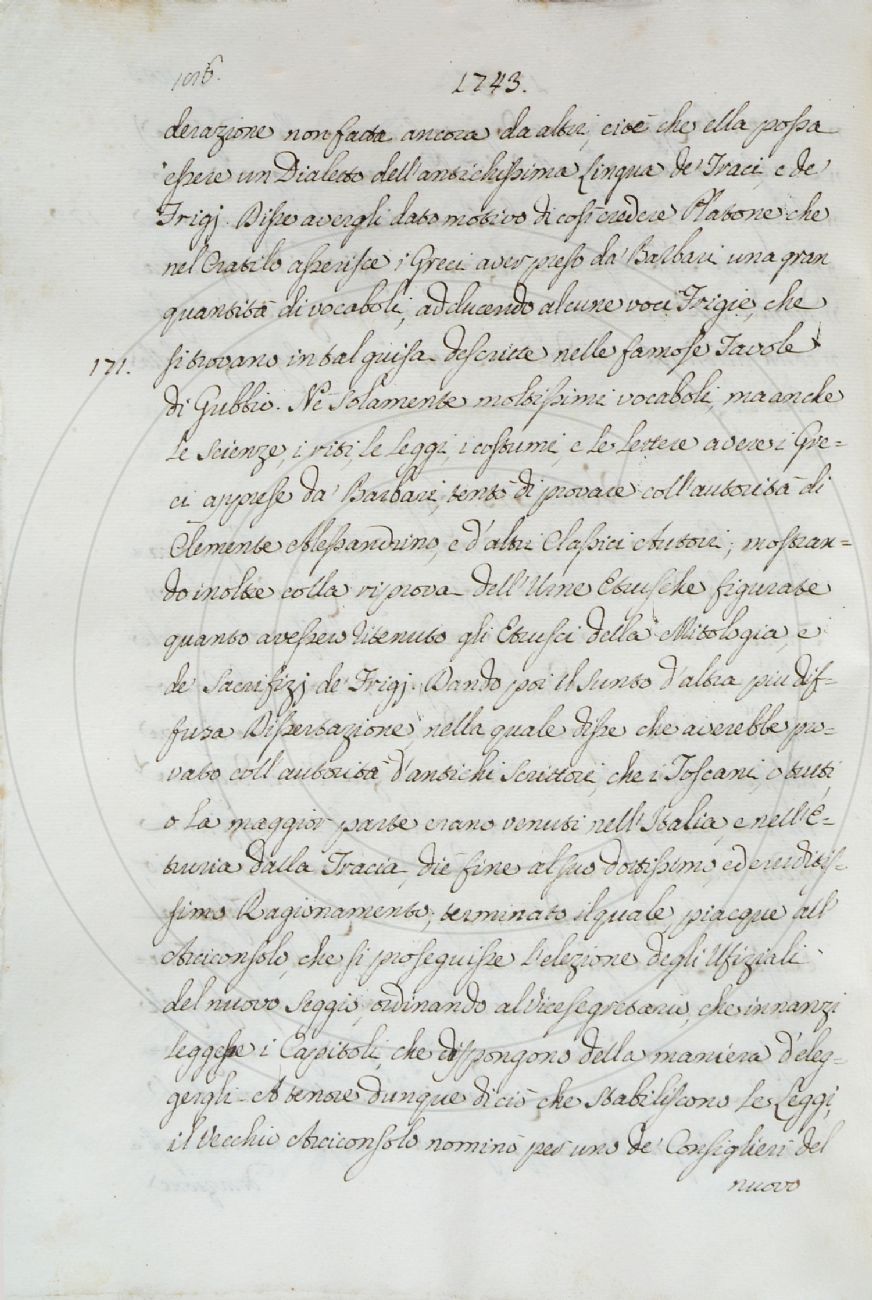 106.
1743.
derazione non fatta ancora da altri, cioè che ella possa
essere un Dialetto dell'antichissima Lingua de' Traci, e de'
Frigj. Disse avergli dato motivo di così credere Platone che
nel Cratilo asserisce i Greci aver preso da' Barbari una gran
quantità di vocaboli, adducendo alcune voci Frigie, che
171. si trovano in tal guisa descritte nelle famose Tavole
di Gubbio. Nè solamente moltissimi vocaboli, ma anche
le scienze, i riti, le leggi, i costumi, e le lettere avere i Gre=
ci apprese da' Barbari, tentò di provare coll'autorità di
Clemente Alessandrino, e d'altri Classici Autori; mostran=
do inoltre colla riprova dell'Urne Etrusche figurate
quanto avessero ritenuto gli Etrusci della Mitologia, e
de' Sacrifizj de' Frigj. Dando poi il sunto d'altra più dif=
fusa Dissertazione, nella quale disse che averebbe pro=
vato coll'autorità d'antichi Scrittori, che i Toscani, o tutti,
o la maggior parte erano venuti nell'Italia, e nell'E=
truria dalla Tracia, diè fine al suo dottissimo, ed eruditis=
simo Ragionamento; terminato il quale, piacque all'
Arciconsolo, che si proseguisse l'elezione degli Ufiziali
del nuovo Seggio, ordinando al Vicesegretario, che innanzi
leggesse i Capitoli, che dispongono della maniera d'eleg=
gergli. A tenore dunque di ciò che stabiliscono le Leggi,
il Vecchio Arciconsolo nominò per uno de' Consiglieri del
nuovo